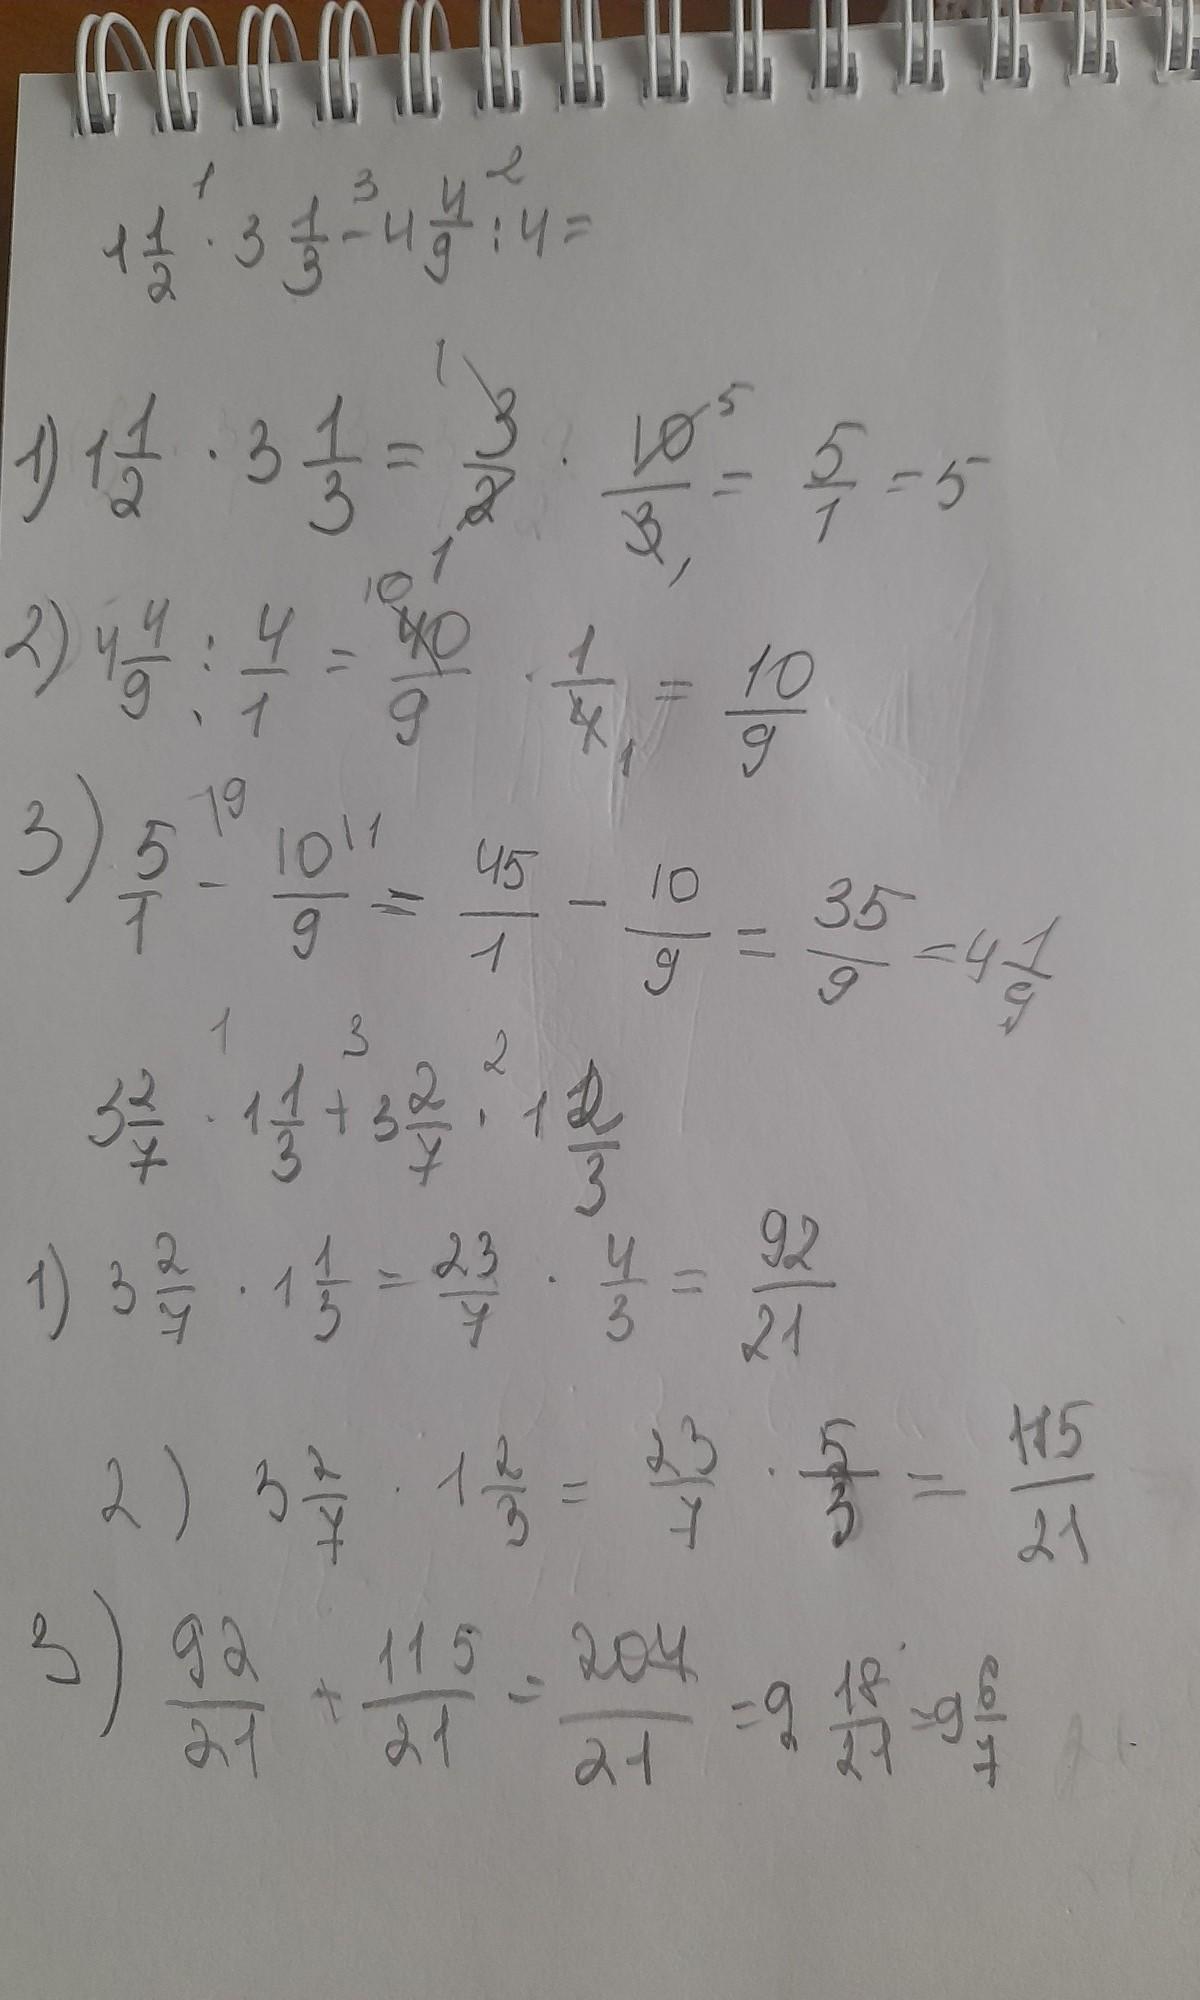 1 1/2 · 3 1/3 - 4 4/9 : 4 =
1) 1 1/2 · 3 1/3 = 3/2 · 10/3 = 5/1 = 5
2) 4 4/9 : 4/1 = 40/9 · 1/4 = 10/9
3) 5/1 - 10/9 = 45/1 - 10/9 = 35/9 = 4 1/9
3 2/7 · 1 1/3 + 3 2/7 · 1 2/3
1) 3 2/7 · 1 1/3 = 23/7 · 4/3 = 92/21
2) 3 2/7 · 1 2/3 = 23/7 · 5/3 = 115/21
3) 92/21 + 115/21 = 207/21 = 9 18/21 = 9 6/7